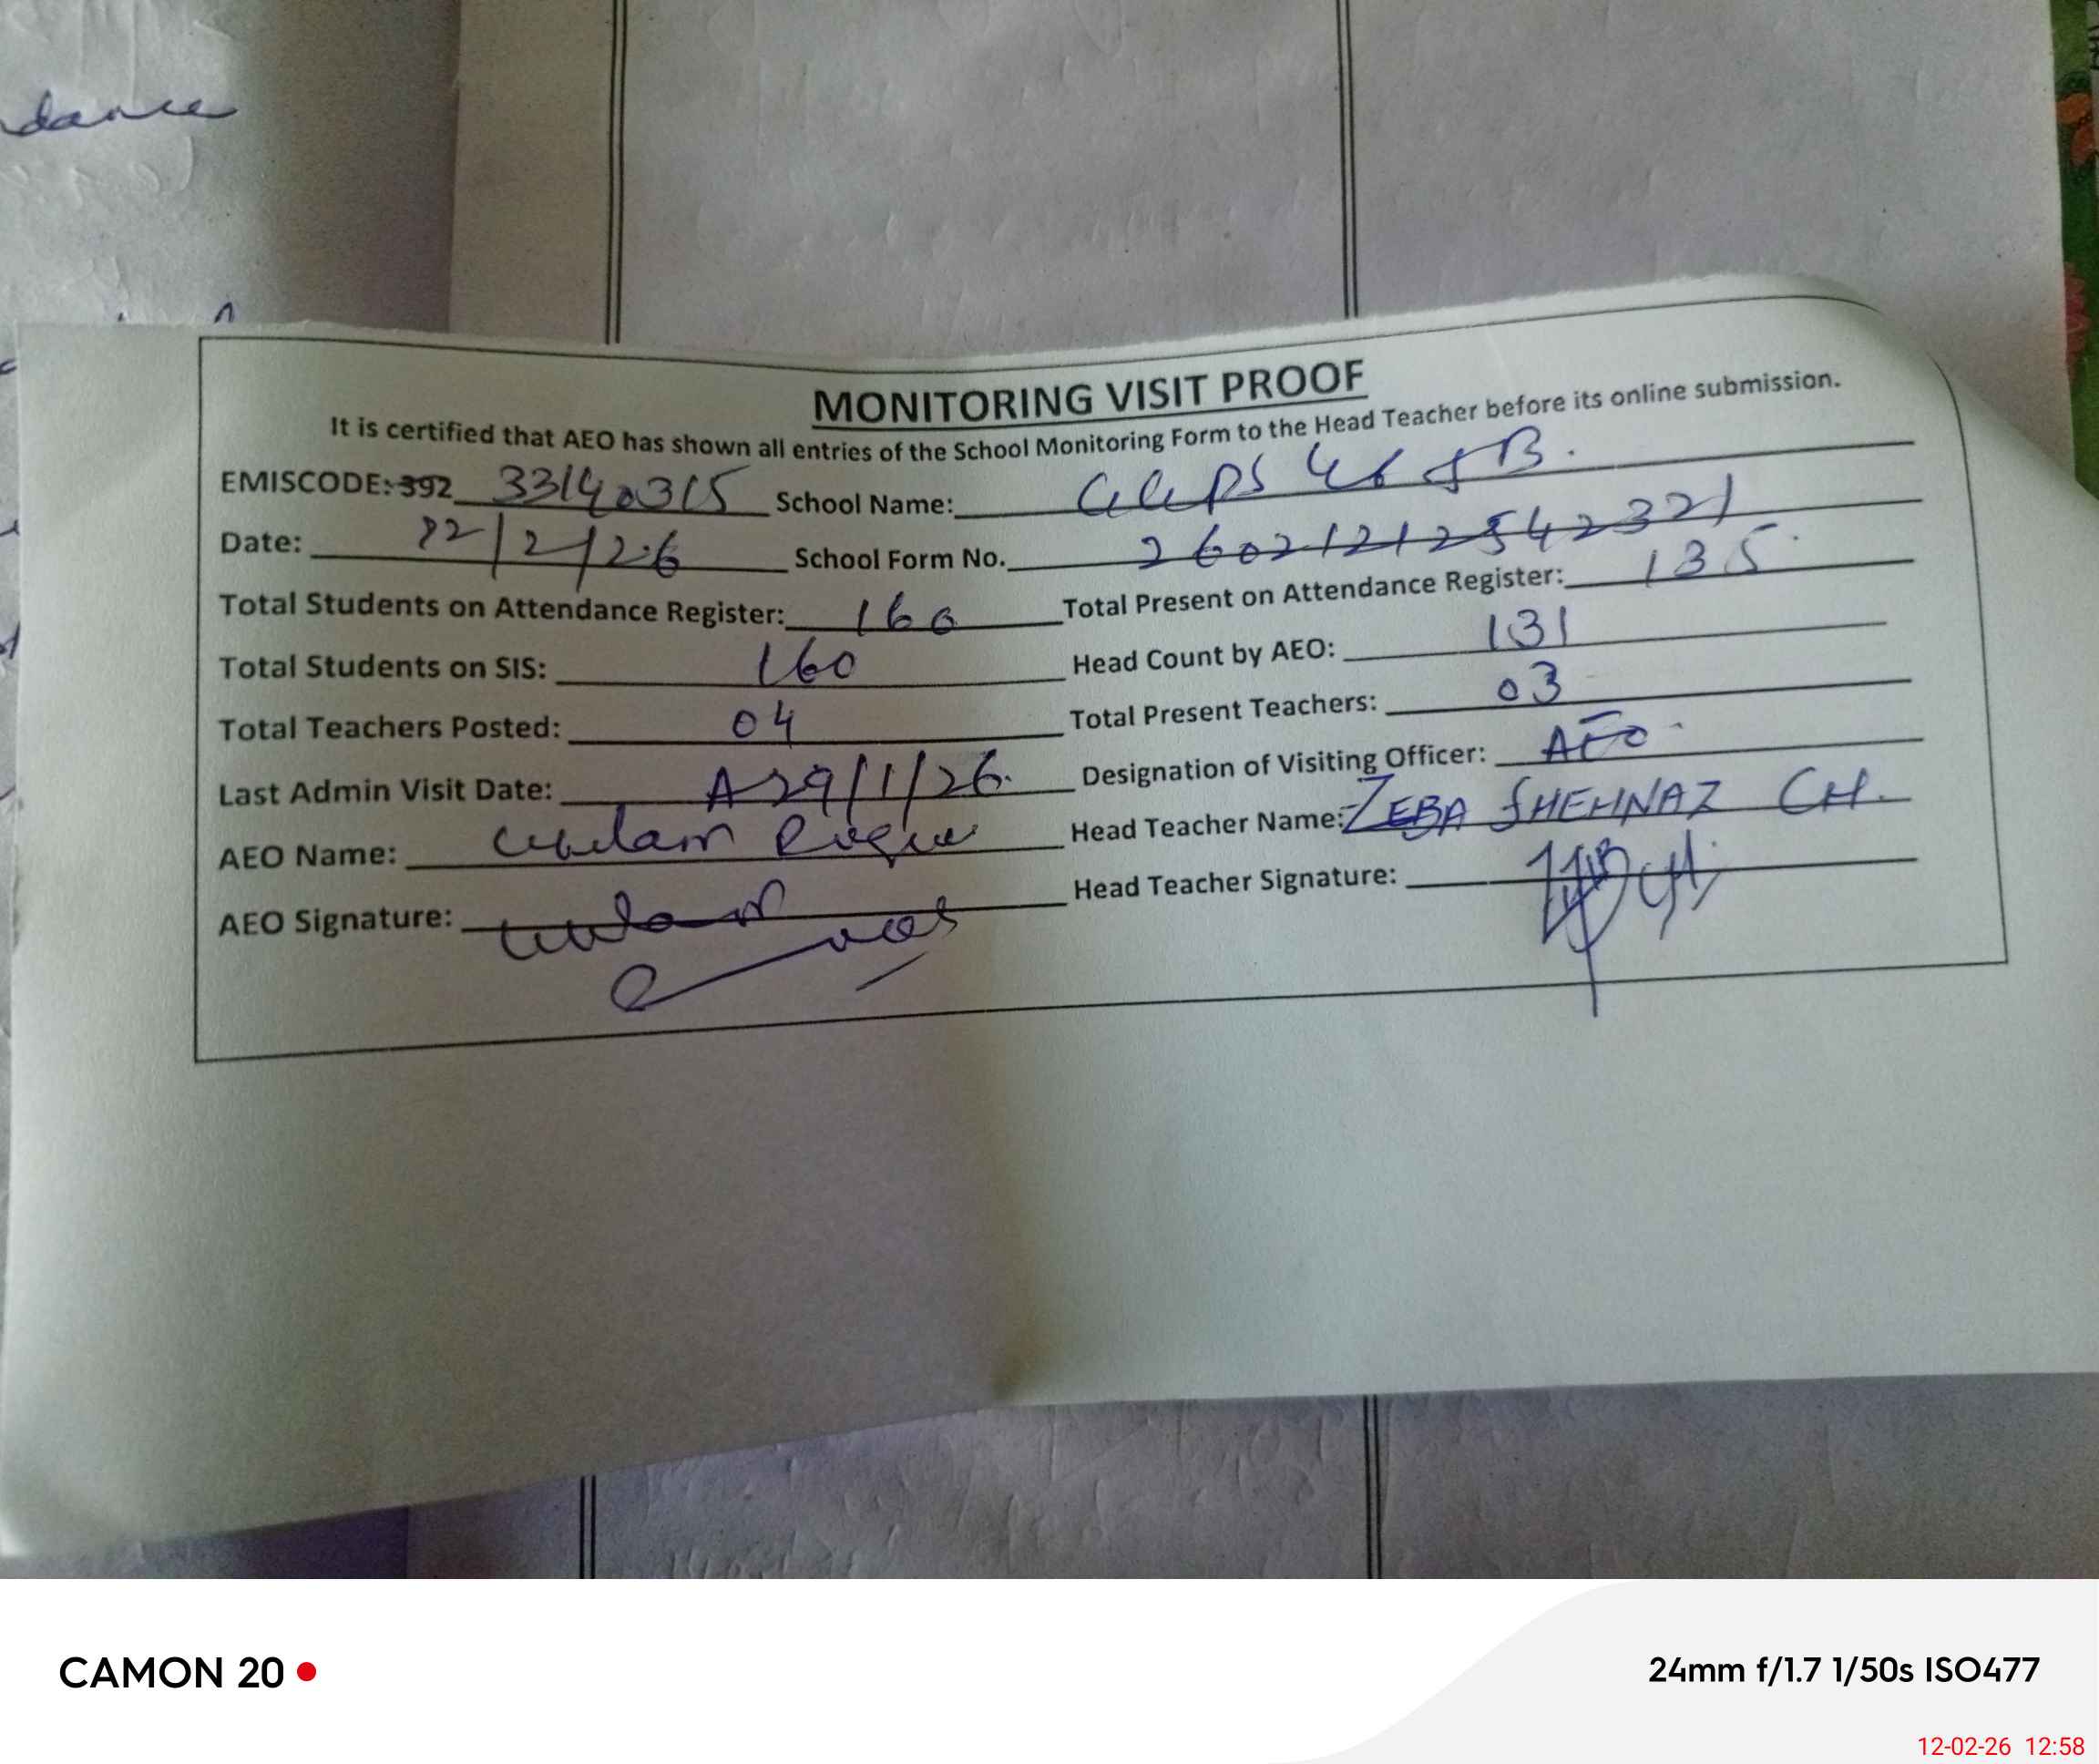 dance
MONITORING VISIT PROOF
It is certified that AEO has shown all entries of the School Monitoring Form to the Head Teacher before its online submission.
EMISCODE: 392 33140315 School Name: GGPS 46 JB.
Date: 12/2/26 School Form No. 2602121254 2321
Total Students on Attendance Register: 160 Total Present on Attendance Register: 135
Total Students on SIS: 160 Head Count by AEO: 131
Total Teachers Posted: 04 Total Present Teachers: 03
Last Admin Visit Date: A 29/1/26. Designation of Visiting Officer: AEO
AEO Name: Ghulam Head Teacher Name: ZEBA SHEHNAZ CH.
AEO Signature: Head Teacher Signature:
CAMON 20
24mm f/1.7 1/50s ISO477
12-02-26 12:58